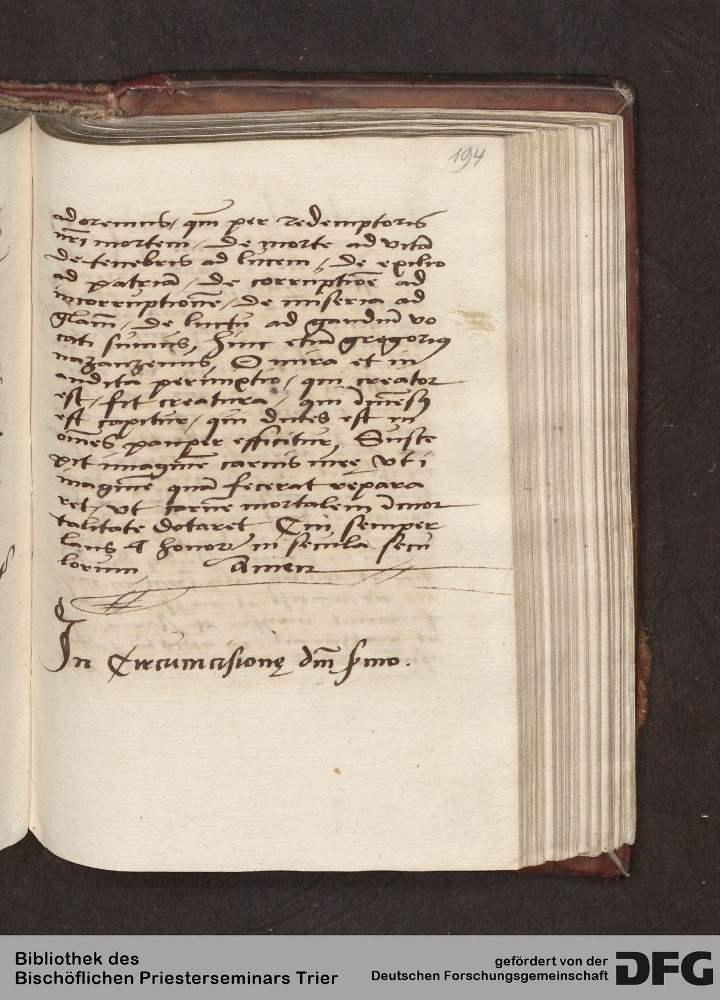 194
adoremus, qm̄ per redemptoris
nr̄i mortem, de morte ad vitā
de tenebris ad lucem, de exilio
ad patriā, de corruptiōe ad
incorruptionē, de miseria ad
glam̄, de luctu ad gaudiū vo
cati sumus, hinc etiā gregorius
nazanzenus, O mira et in
audita permixtio, qui creator
est, fit creatura, qui īmēsus
est capitur, qui diuites est in
oms̄ pauper efficitur, Susce
pit imaginē carnis meę vt i
maginē quā fecerat repara
ret, vt carnē mortalem īmor
talitate dotaret Cui semper
laus & honor in secula secu
lorum Amen
In Circumcisionę dm̄ sm̄o.
Bibliothek des
Bischöflichen Priesterseminars Trier
gefördert von der
Deutschen Forschungsgemeinschaft DFG